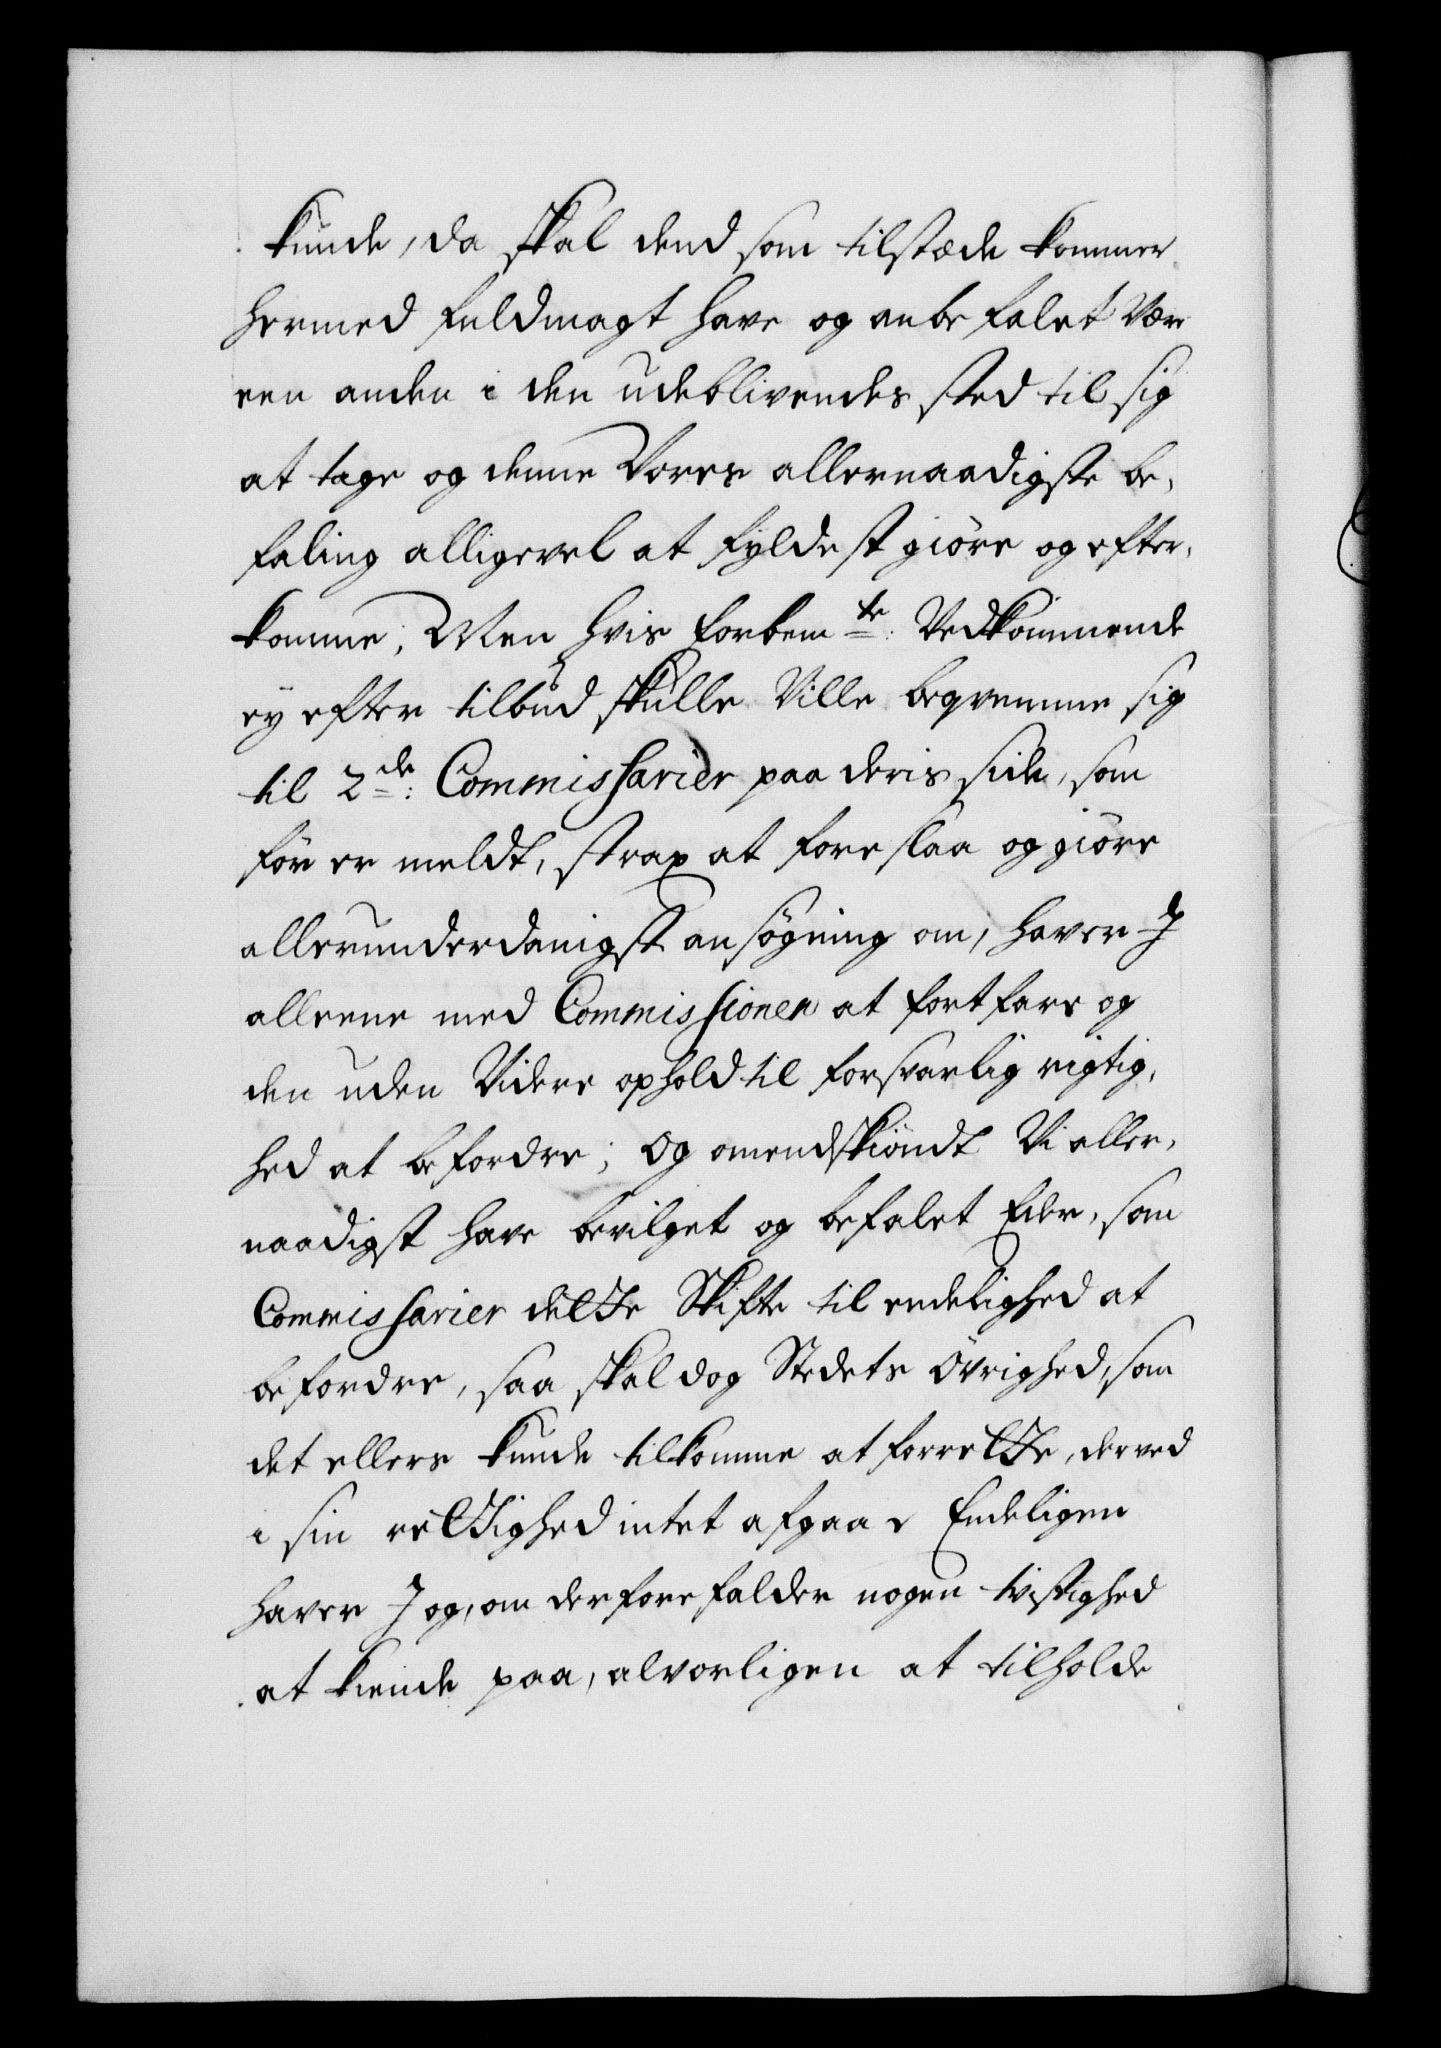 kunde, da skal dend som tilstæde kommer
hermed fuldmagt have og anbefalet Være
een anden i den udeblivendes sted til sig
at tage og denne Vores allernaadigste be,
faling alligevel at fyldest giöre og efter,
komme; Men hvis forbem<sup>te</sup>: Vedkommende
ey efter tilbud skulle Ville beqvemme sig
til 2<sup>de</sup>: Commissarier paa deris side, som
før er meldt, strax at foreslaa og giöre
allerunderdanigst ansøgning om, haver J
alleene med Commissionen at fortfare og
den uden Videre ophold til forsvarlig rigtig,
hed at befordre; Og omendskiöndt Vi aller,
naadigst have bevilget og befalet Eder, som
Commissarier dette Skifte til endelighed at
befordre, saa skal dog Stedets Övrighed, som
det ellers kunde tilkomme at forrette, derved
i sin rettighed intet afgaa. Endeligen
haver J og, om der forefalder nogen tvistighed
at kiende paa, alvorligen at tilholde